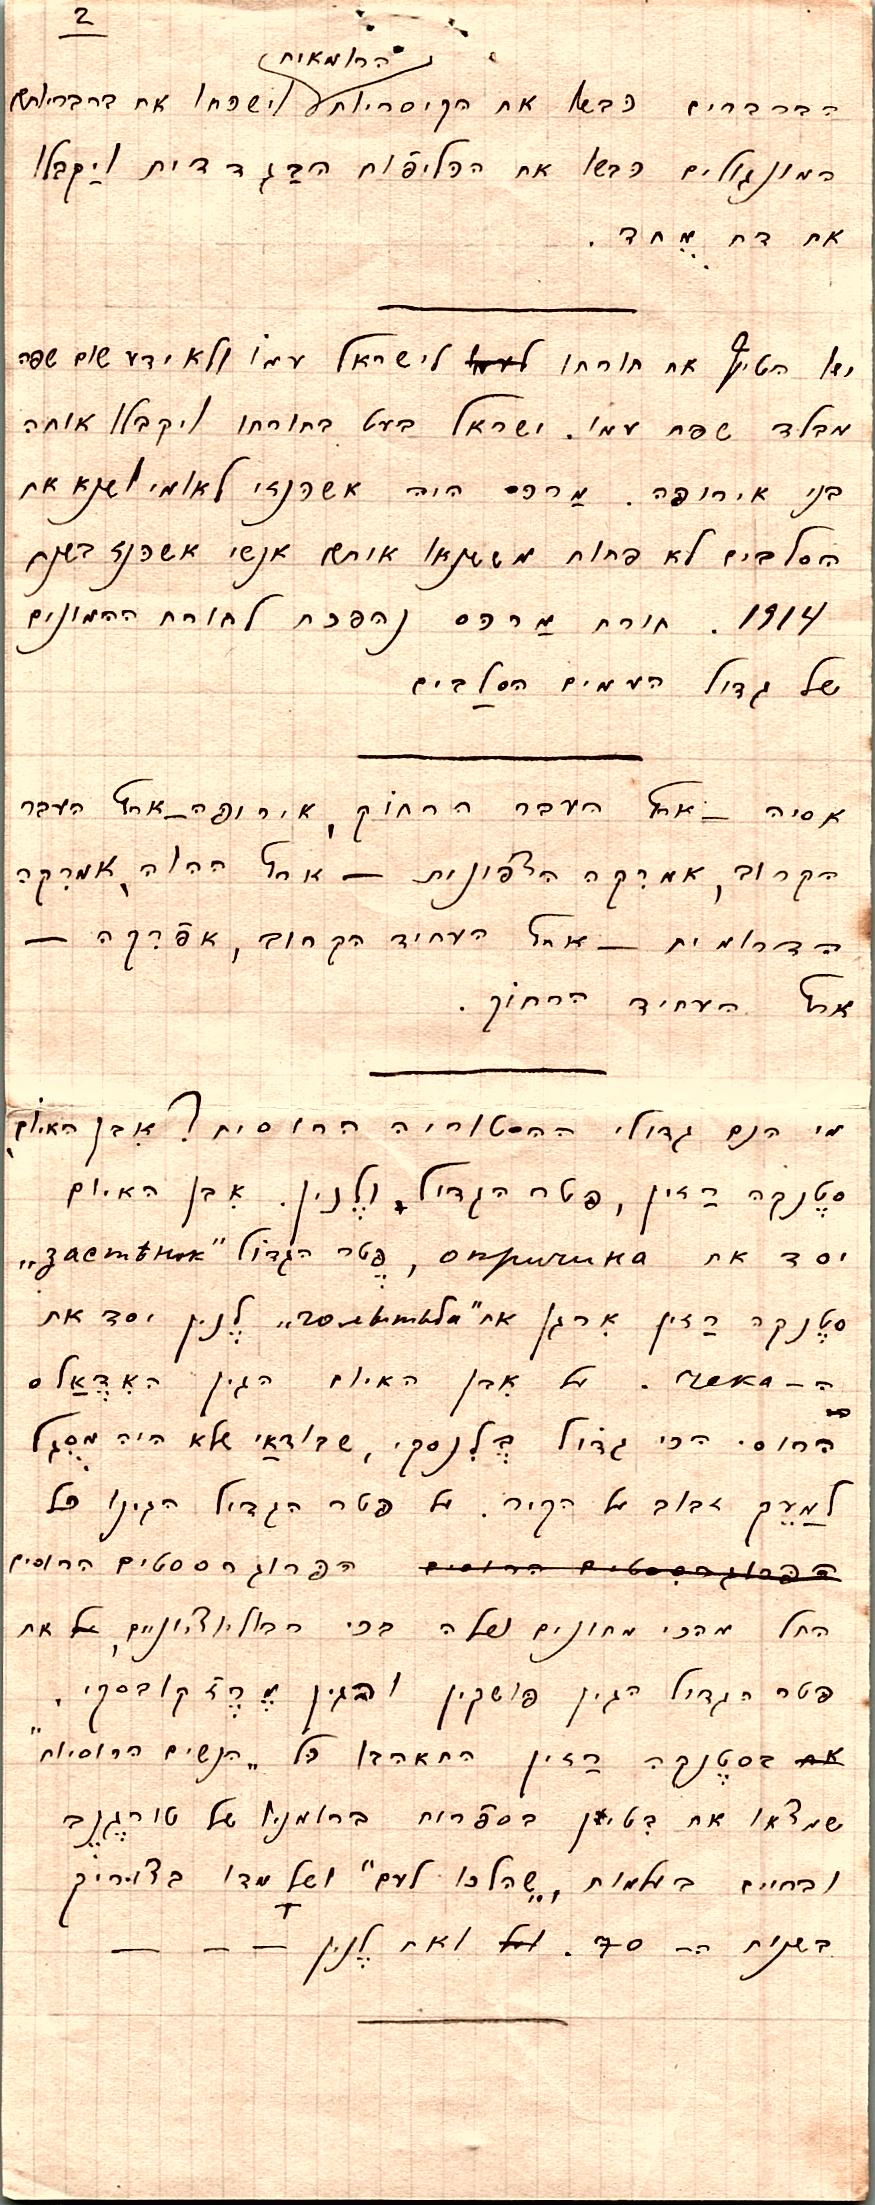 2
הרומאית
הברברים כבשו את הקיסריות וישכחו את ברבריותם
המונגולים כבשו את הכליפות הבַגדדית ויַקבלו
את דת מֻחמד.
ישו הטיף את תורתו לעמו לישראל עמו ולא ידע שום שפה
מבלד שפת עמו. ישראל בעט בתורתו ויקבלו אותה
בני אירופה. מַרכס היה אשכנזי לאומי ושנא את
הסלבים לא פחות משׂשנאו אותם אנשי אשכנז בשנת
1914. תורת מַרכס נהפכת לתורת ההמונים
של גדול העמים הסלַבים
אסיה – ארץ העבר הרחוק, אירופה – ארץ העבר
הקרוב, אמרִקה הצפונית – ארץ ההוה, אמרִקה
הדרומית – ארץ העתיד הקרוב, אפרִקה –
ארץ העתיד הרחוק.
מי הנם גדולי ההסטוריה הרוסית? אִבן האיום,
סטֶנקה רַזין, פטר הגדול, ולֶנין. אִבן האיום
יסד את опричина, פֶטר הגדול "застѣнок"
סטֶנקה רַזין אִרגן את "голытьба" לֶנין יסד את
ה– чека. על אִבן האיום הגין האִדֶאַלס
הרוסי הכי גדול בֶלִנסקי, שבודַאי שלא היה מסֻגל
למַעֵך זבוב על הקיר. על פטר הגדול הגינו כל
הפרוגרסִסטים הרוסים הפרוגרססטים הרוסים
החל מהכי מתונים וכלה בכי רבוליוציוניים, על את
פטר הגדול הגין פושקין והגין מֶרֶזקובסקי.
את בסטֶנקה רַזין התאהבו כל "הנשים הרוסיות"
שמצאו את בִטוין בספרות ברומניו של טורגֶנֶב
ובחיים בעלמות, "שהלכו לעם" ושלָמדו בצוריך
בשנות ה– 70. ועל ואת לֶנין – – –